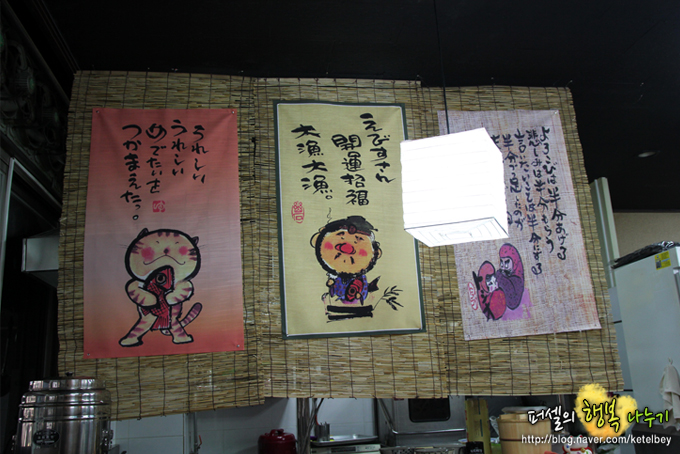 うれしい
うれしい
めでたいを
つかまえたっ。
えびすさん
開運招福
大漁大漁。
よろこびは半分あげる
悲しみは半分もらう
퍼셀의 행복 나누기
http://blog.naver.com/ketelbey